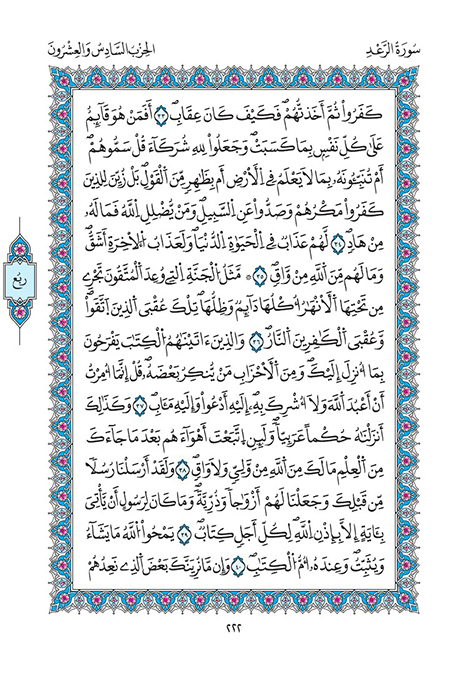 سُورَةُ الرَّعْدِ
الحِزْبُ السَّادِسُ وَالعِشْرُونَ
كَفَرُواْ ثُمَّ أَخَذتُّهُمْ فَكَيْفَ كَانَ عِقَابِ ٣٣ أَفَمَنْ هُوَ قَآئِمٌ
عَلَىٰ كُلِّ نَفْسٍۢ بِمَا كَسَبَتْ وَجَعَلُواْ لِلهِ شُرَكَآءَ قُلْ سَمُّوهُمُۥٓ
أَمْ تُنَبِّـُٔونَهُۥ بِمَا لَا يَعْلَمُ فِي اِ۬لْأَرْضِ أَم بِظَٰهِرٍ مِّنَ اَ۬لْقَوْلِ بَلْ زُيِّنَ لِلذِينَ
كَفَرُواْ مَكْرُهُمْ وَصَدُّواْ عَنِ اِ۬لسَّبِيلِ وَمَنْ يُّضْلِلِ اِ۬للَّهُ فَمَا لَهُۥ
مِنْ هَادٍ ٣٤ لَّهُمْ عَذَابٌ فِي اِ۬لْحَيَوٰةِ اِ۬لدُّنْيَا وَلَعَذَابُ اُ۬لْأٓخِرَةِ أَشَقُّ
وَمَا لَهُم مِّنَ اَ۬للَّهِ مِنْ وَّاقٍ ٣٥ ۞ مَّثَلُ اُ۬لْجَنَّةِ اِ۬لتِي وُعِدَ اَ۬لْمُتَّقُونَ تَجْرِي
مِن تَحْتِهَا اَ۬لْأَنْهَٰرُ أُكُلُهَا دَآئِمٌ وَظِلُّهَا تِلْكَ عُقْبَى اَ۬لذِينَ اَ۪تَّقَواْ
وَّعُقْبَى اَ۬لْكَٰفِرِينَ اَ۬لنَّارُ ٣٦ وَالذِينَ ءَاتَيْنَٰهُمُ اُ۬لْكِتَٰبَ يَفْرَحُونَ
بِمَآ أُنزِلَ إِلَيْكَ وَمِنَ اَ۬لْأَحْزَابِ مَنْ يُّنكِرُ بَعْضَهُۥ قُلِ اِنَّمَآ أُمِرْتُ
أَنَ اَعْبُدَ اَ۬للَّهَ وَلَآ أُشْرِكَ بِهِۦٓ إِلَيْهِ أَدْعُواْ وَإِلَيْهِ مَـَٔابِ ٣٧ وَكَذَٰلِكَ
أَنزَلْنَٰهُ حُكْماً عَرَبِيّاً وَلَئِنِ اِ۪تَّبَعْتَ أَهْوَآءَهُم بَعْدَ مَا جَآءَكَ
مِنَ اَ۬لْعِلْمِ مَا لَكَ مِنَ اَ۬للَّهِ مِنْ وَّلِيٍّ وَلَا وَاقٍ ٣٨ وَلَقَدَ اَرْسَلْنَا رُسُلًا
مِّن قَبْلِكَ وَجَعَلْنَا لَهُمُۥٓ أَزْوَٰجاً وَذُرِّيَّةً وَمَا كَانَ لِرَسُولٍ اَنْ يَّأْتِيَ
بِـَٔايَةٍ اِلَّا بِإِذْنِ اِ۬للَّهِ لِكُلِّ أَجَلٍ كِتَابٌ ٣٩ يَمْحُواْ اُ۬للَّهُ مَا يَشَآءُ
وَيُثَبِّتُ وَعِندَهُۥٓ أُمُّ اُ۬لْكِتَٰبِ ٤٠ وَإِن مَّا نُرِيَنَّكَ بَعْضَ اَ۬لذِي نَعِدُهُمُۥٓ
ربع
٢٢٢